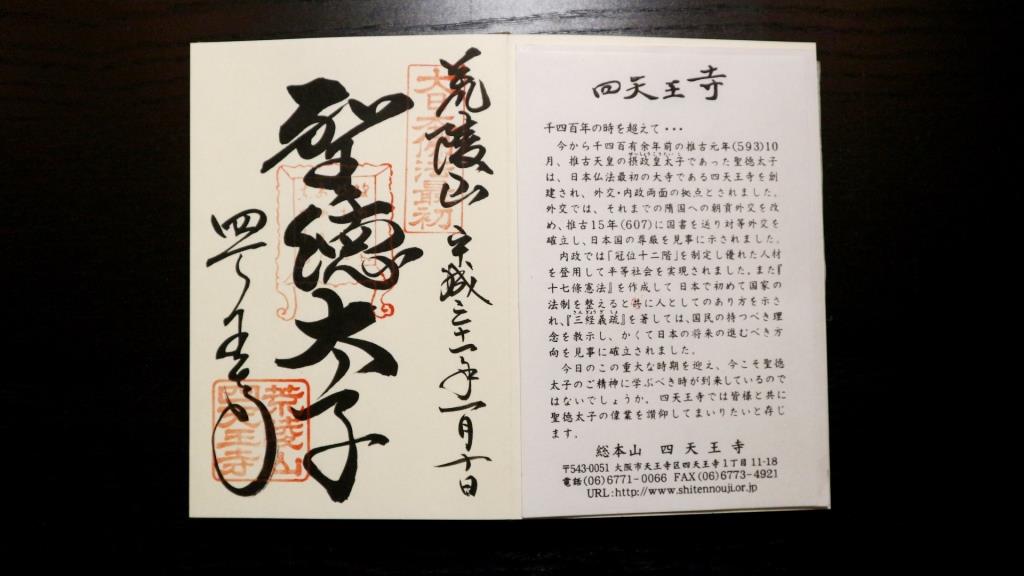 荒陵山 平成三十一年一月十日
大日本佛法最初
聖徳太子
四天王寺
荒陵山
四天王寺
四天王寺
千四百年の時を超えて・・・
今から千四百有余年前の推古元年(593)10
月、推古天皇の摂政皇太子であった聖徳太子
は、日本仏法最初の大寺である四天王寺を創
建され、外交・内政両面の拠点とされました。
外交では、それまでの隋国への朝貢外交を改
め、推古15年(607)に国書を送り対等外交を
確立し、日本国の尊厳を見事に示されました。
内政では「冠位十二階」を制定し優れた人材
を登用して平等社会を実現されました。また『
十七條憲法』を作成して 日本で初めて国家の
法制を整えると共に人としてのあり方を示さ
れ、『三経義疏』を著しては、国民の持つべき理
念を教示し、かくて日本の将来の進むべき方
向を見事に確立されました。
今日のこの重大な時期を迎え、今こそ聖徳
太子のご精神に学ぶべき時が到来しているので
はないでしょうか。四天王寺では皆様と共に
聖徳太子の偉業を讃仰してまいりたいと存じ
ます。
総本山 四天王寺
〒543-0051 大阪市天王寺区四天王寺1丁目11-18
電話(06)6771-0066 FAX(06)6773-4921
URL:http://www.shitennouji.or.jp